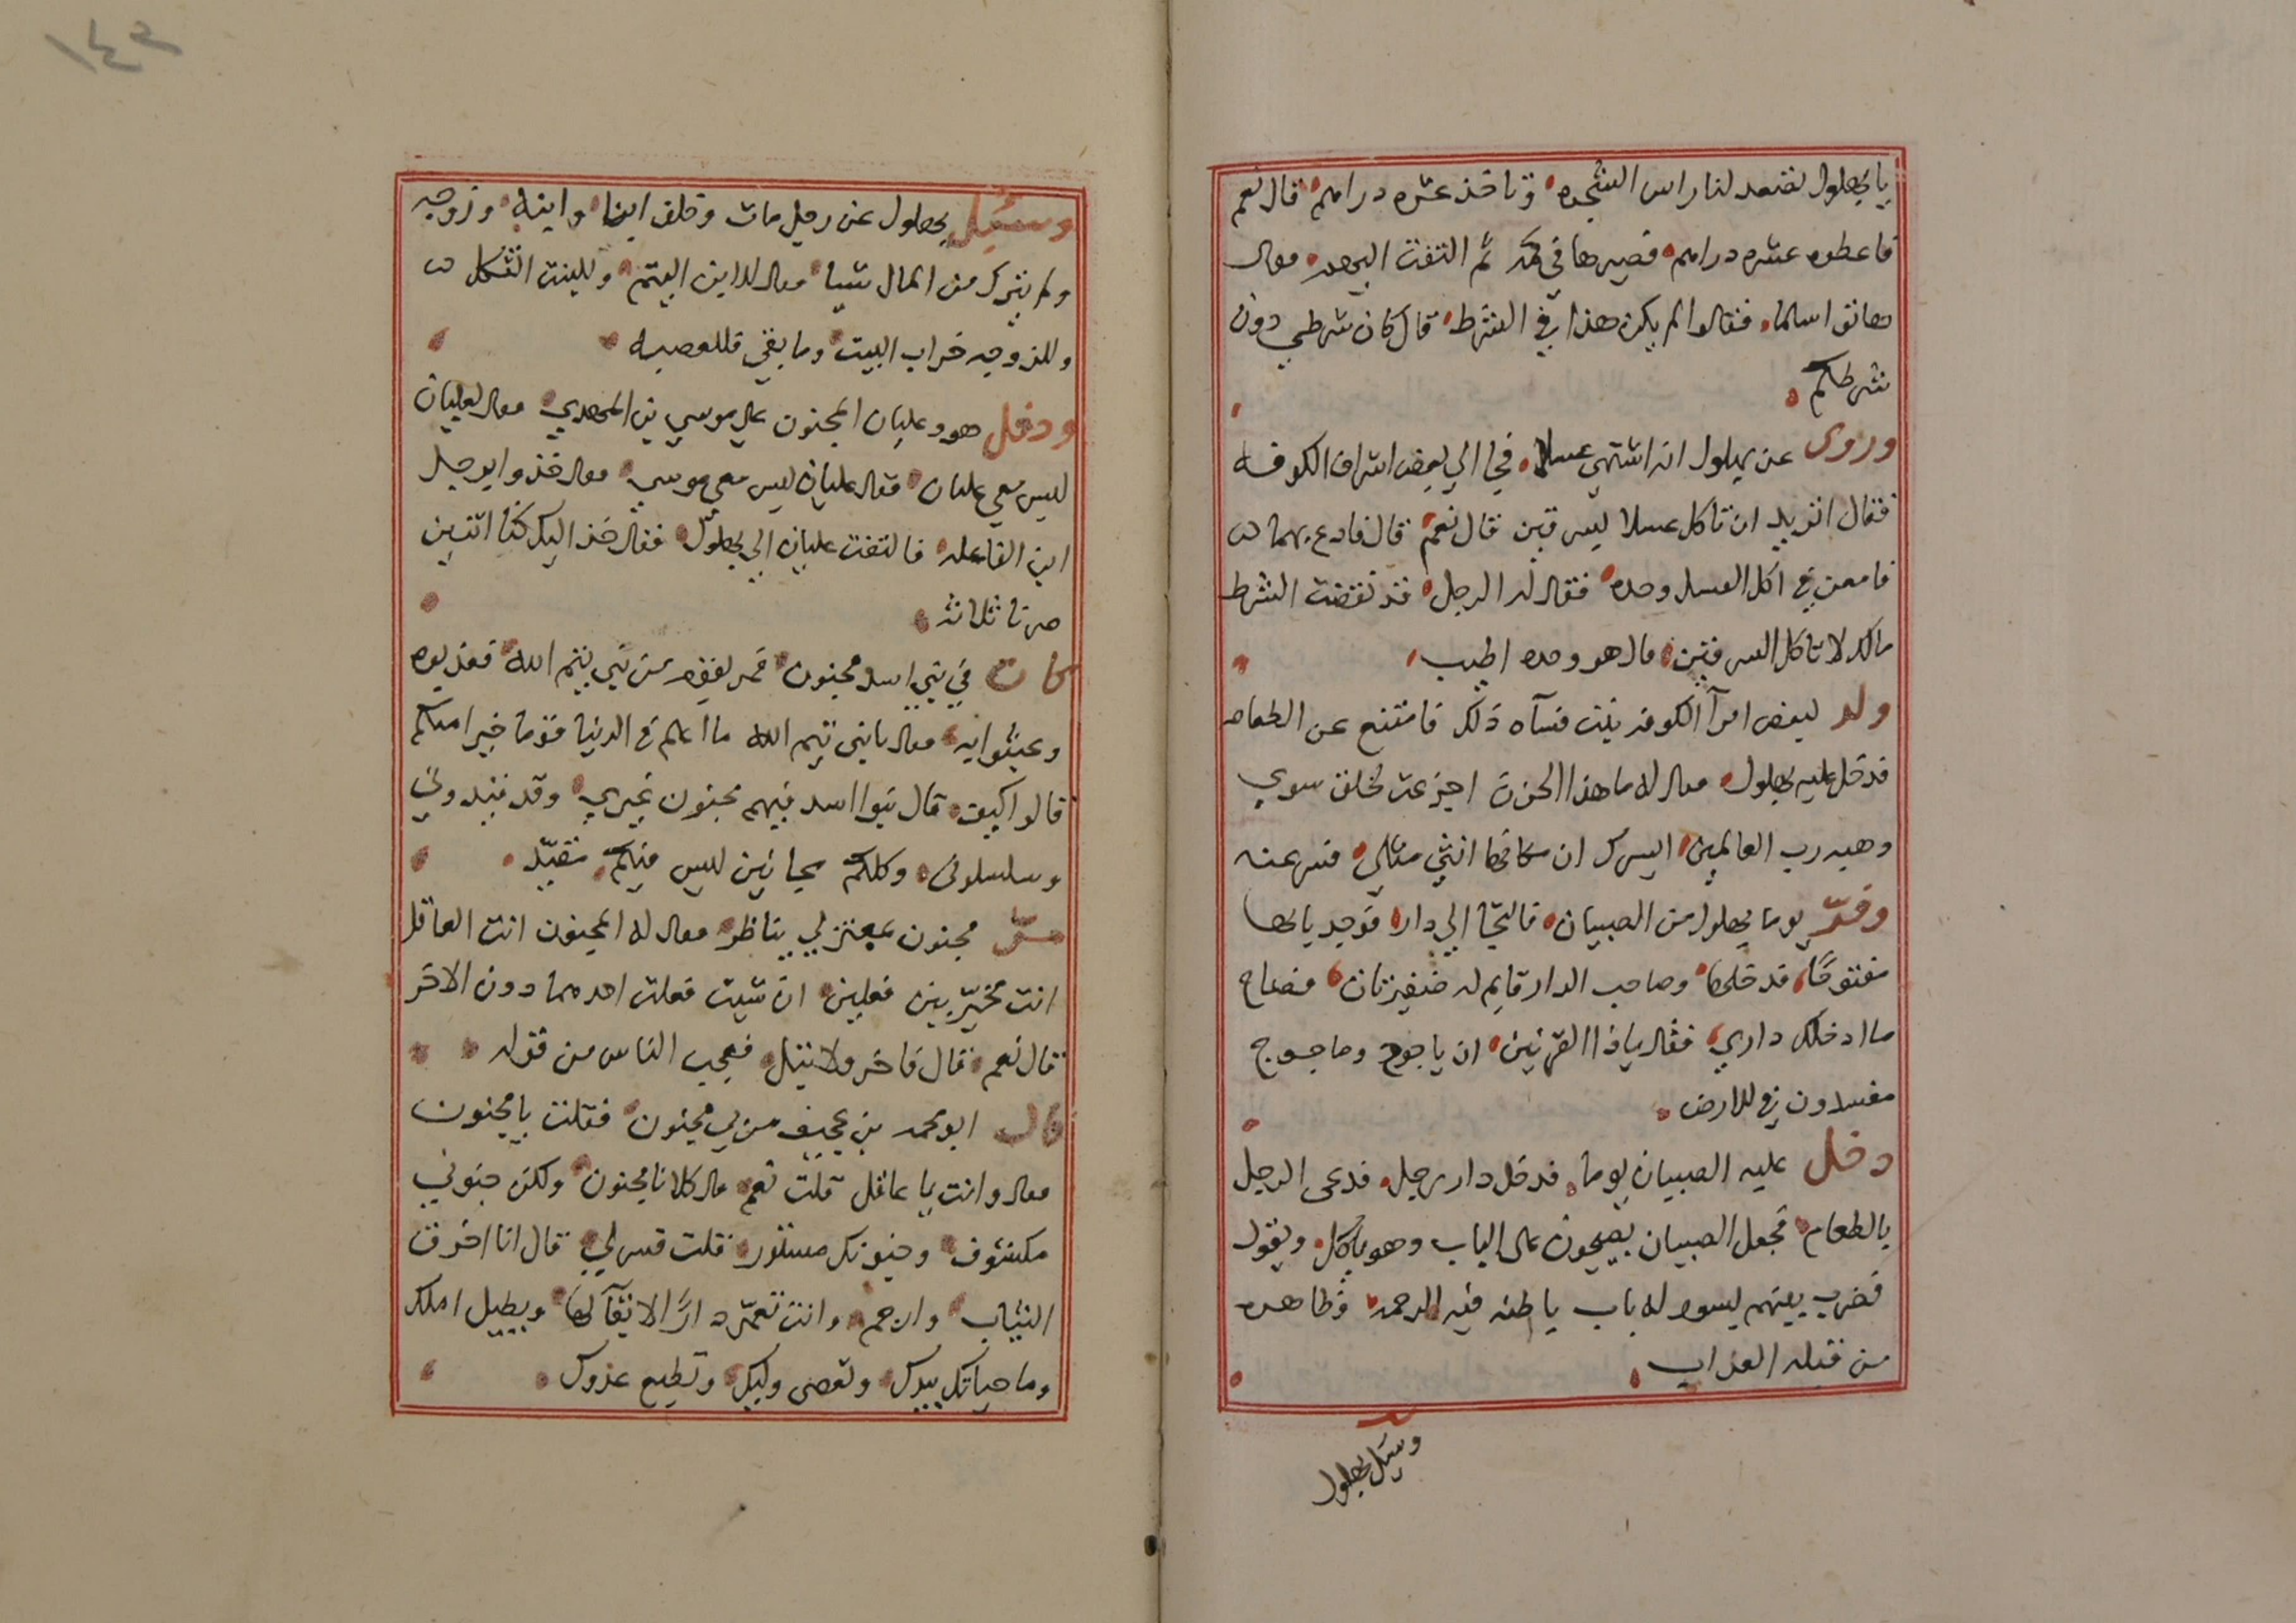 يا بهلول تصعد لنا راس الشجره وتاخذ عشره دراهم قال نعم
فاعطوه عشره دراهم فصيرها في كمه ثم التفت اليهم وقال
هاتوا سلما فقالوا لم يكن هذا في الشرط قال كان شرطي دون
شرطكم
وروى عن بهلول انه اشتهى عسلا فجا الي بعض اشراف الكوفه
فقال اتريد ان تاكل عسلا بسرقين قال نعم قال فادع بهما
فامعن في اكل العسل وحده فقال له الرجل قد نقضت الشرط
مالك لا تاكل السرقين قال هو وحده اطيب
ولد لبعض امرآ الكوفه بنت فسآه ذلك فامتنع عن الطعام
فدخل عليه بهلول فقال له ما هذا الحزن اجزعت لخلق سوي
وهبه رب العالمين ايسرك ان مكانها انثي مثلي فسرى عنه
وفرّ يوما بهلول من الصبيان فالتجا الي دار فوجد بابها
مفتوحًا فدخلها وصاحب الدار قايم له ضفيرتان فصاح
ما ادخلك داري فقال ياذا القرنين ان ياجوج وماجوج
مفسدون في الارض
دخل عليه الصبيان يوما فدخل دار رجل فدعى الرجل
بالطعام فجعل الصبيان يصيحون على الباب وهو ياكل ويقول
فضرب بينهم بسور له باب باطنه فيه الرحمه وظاهره
من قبله العذاب
وسيل بهلول
١٤٢
وسئيل بهلول عن رجل مات وخلف ابنا وابنة وزوجه
ولم يترك من المال شيا فقال للابن اليتم وللبنت الثكل
وللزوجه خراب البيت وما بقي فللعصبه
ودخل هو وعليان المجنون على موسي بن المهدي فقال لعليان
ايس معي عليان فقال عليان ايس معي موسي فقال خذوا برجل
ابن الفاعله فالتفت عليان الي بهلول فقال خذ اليك كنا اثنين
صرنا ثلاثه
كان في بني اسد مجنون فمر بقوم من بني تيم الله فعذبوه
وعبثوا به فقال يا بني تيم الله ما اعلم في الدنيا قوما خير امنكم
قالوا كيف قال بنوا اسد فيهم مجنون غيري وقد قيدوني
وسلسلوني وكلكم مجانين ليس فيكم مقيّد
مرّ مجنون بمعتزلي يناظر فقال له المجنون انت العاقل
انت مخيّر بين فعلين ان شيت فعلت احدهما دون الاخر
قال نعم قال فاخر ولا تبل فعجب الناس من قوله
قال ابو محمد بن عجيف مر بي مجنون فقلت يا مجنون
فقال وانت يا عاقل قلت نعم قال كلانا مجنون ولكن جنوني
مكشوف وجنونك مستور قلت فسر لي قال انا اخرق
الثياب وارجم وانت تعمّر دارًا لا بقآ لها وبطيل املك
وما حياتك بيدك وتعصى وليك وتطيع عدوك